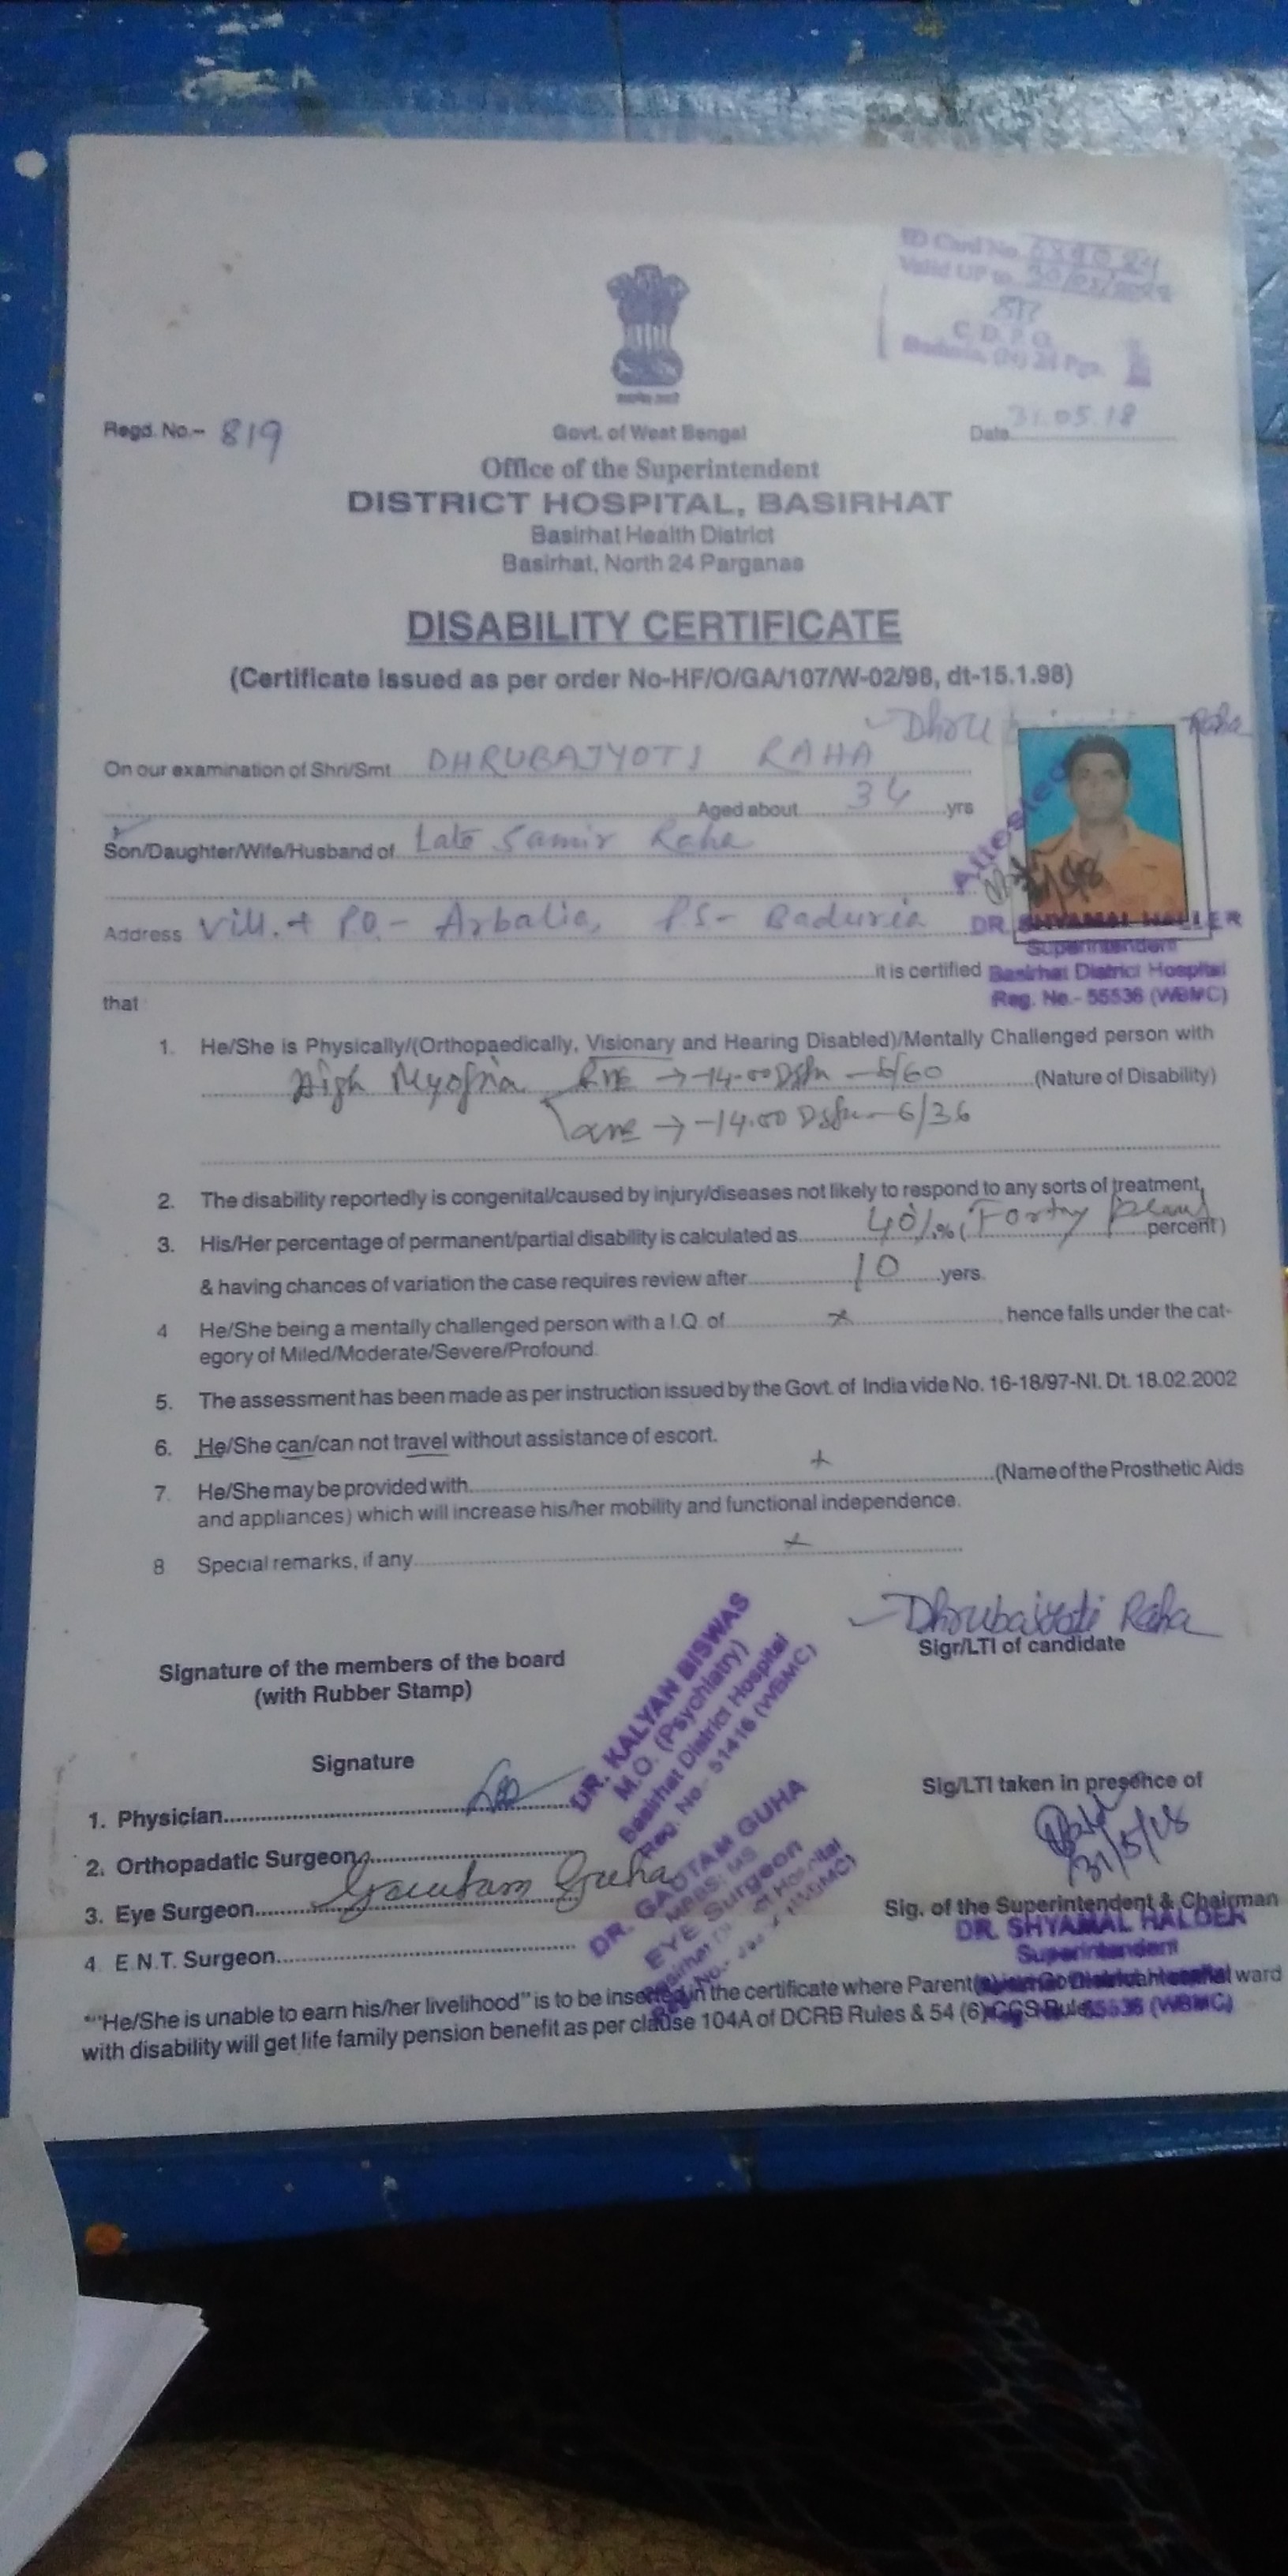 ID Card No.
Valid UP to
C. D. P. O.
Baduria, (N) 24 Pgs.
Regd. No.- 819
Govt. of West Bengal
Date 31.05.18
Office of the Superintendent
DISTRICT HOSPITAL, BASIRHAT
Basirhat Health District
Basirhat, North 24 Parganas
DISABILITY CERTIFICATE
(Certificate issued as per order No-HF/O/GA/107/W-02/98, dt-15.1.98)
Dhru Raha
On our examination of Shri/Smt DHRUBAJYOTI RAHA
Aged about 34 yrs
Attested
Son/Daughter/Wife/Husband of Late Samir Raha
Address Vill. + P.O.- Arbalia, P.S- Baduria
DR. SHYAMAL HALDER
Superintendent
it is certified Basirhat District Hospital
that Reg. No.- 55536 (WBMC)
1. He/She is Physically/(Orthopaedically, Visionary and Hearing Disabled)/Mentally Challenged person with
High Myopia → -14.00 6/60 (Nature of Disability)
→ -14.00 6/36
2. The disability reportedly is congenital/caused by injury/diseases not likely to respond to any sorts of treatment.
3. His/Her percentage of permanent/partial disability is calculated as 40% % (Forty percent)
& having chances of variation the case requires review after 10 yers.
4 He/She being a mentally challenged person with a I.Q. of x hence falls under the cat-
egory of Miled/Moderate/Severe/Profound.
5. The assessment has been made as per instruction issued by the Govt. of India vide No. 16-18/97-NI. Dt. 18.02.2002
6. He/She can/can not travel without assistance of escort.
7. He/She may be provided with x (Name of the Prosthetic Aids
and appliances) which will increase his/her mobility and functional independence.
8 Special remarks, if any x
Dhrubajyoti Raha
Sigr/LTI of candidate
Signature of the members of the board
(with Rubber Stamp)
DR. KALYAN BISWAS
M.O. (Psychiatry)
Basirhat District Hospital
Reg. No- 51416 (WBMC)
Signature
Sig/LTI taken in presence of
31/5/18
1. Physician
2. Orthopadatic Surgeon
3. Eye Surgeon Gautam Guha
4. E.N.T. Surgeon
DR. GAUTAM GUHA
MBBS; MS
EYE Surgeon
Sig. of the Superintendent & Chairman
DR. SHYAMAL HALDER
Superintendent
""He/She is unable to earn his/her livelihood" is to be inserted in the certificate where Parent ward
with disability will get life family pension benefit as per clause 104A of DCRB Rules & 54 (6) CCS Rules 55536 (WBMC)